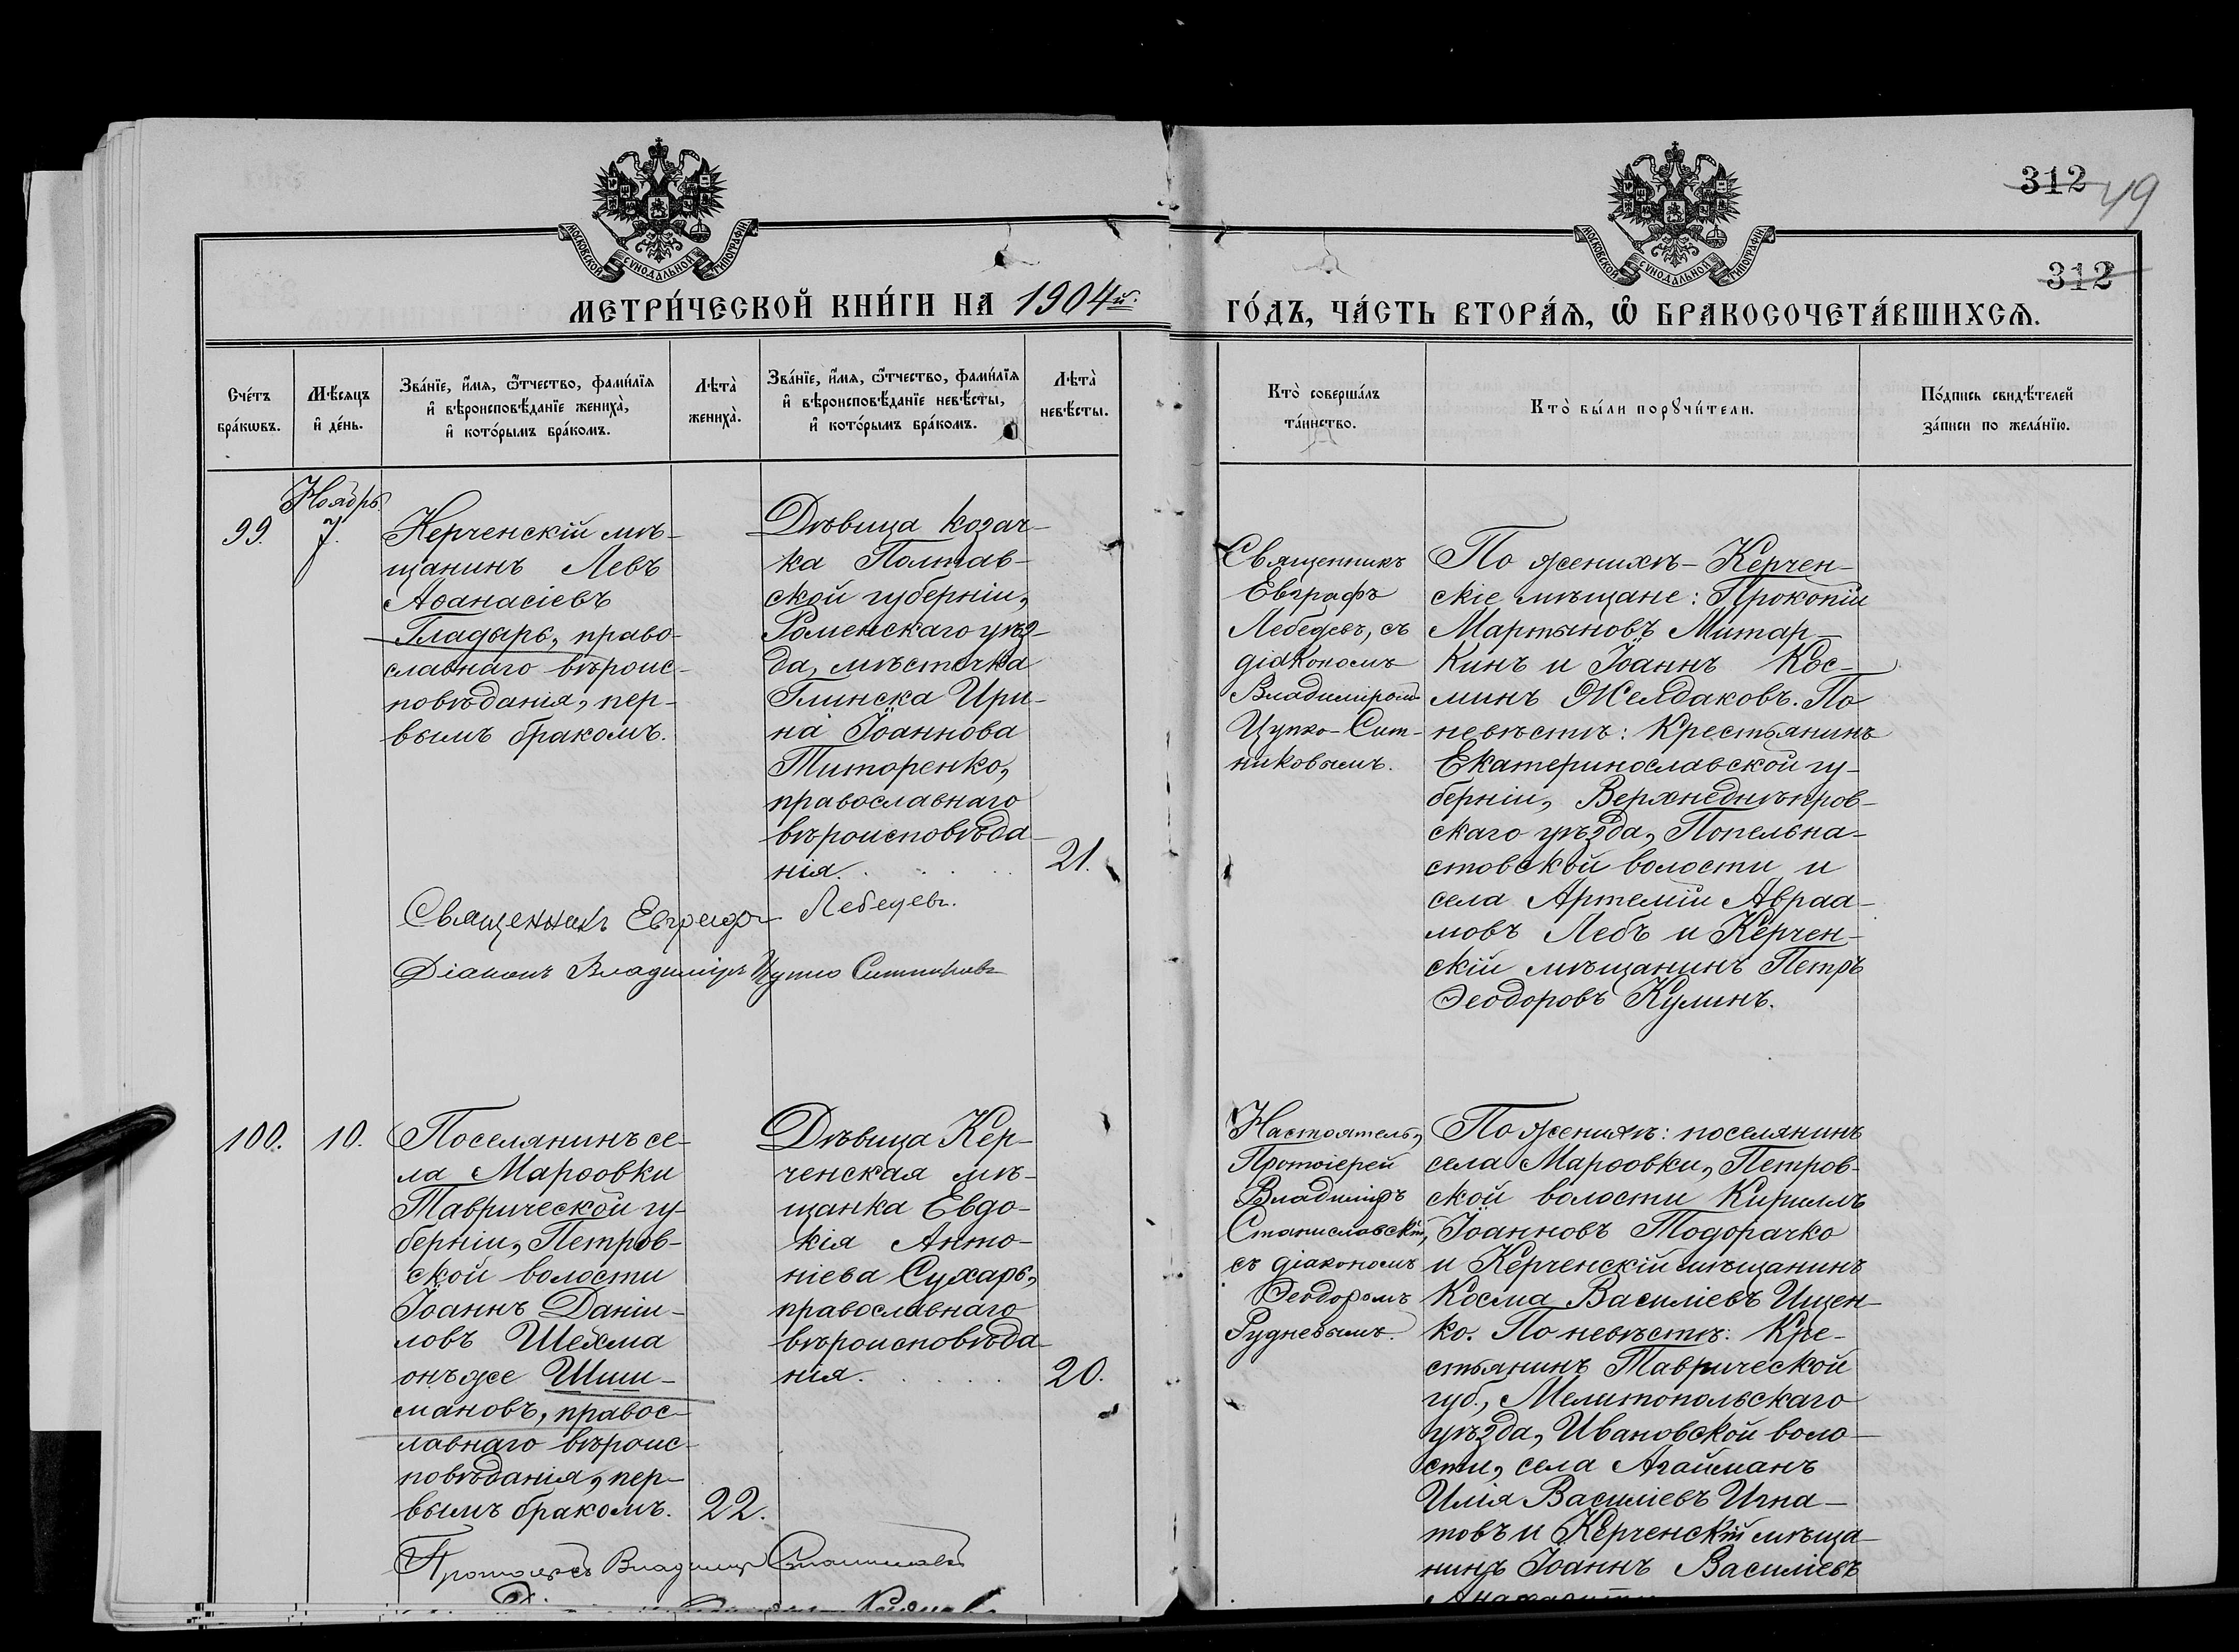 312 49
МОСКОВСКОЙ СѴНОДАЛЬНОЙ ТИПОГРАФІИ
МОСКОВСКОЙ СѴНОДАЛЬНОЙ ТИПОГРАФІИ
312
МЕТРИ́ЧЕСКОЙ КНИ́ГИ НА 1904й.
ГО́ДЪ, ЧА́СТЬ ВТОРА́Ѧ, Ѽ БРАКОСОЧЕТА́ВШИХСѦ.
Сче́тъ
бра́кѡвъ.
Мѣ́сяцъ
и҆ де́нь.
Зва́нїе, и҆́мя, ѻ҆́тчество, фами́лїя
и҆ вѣроисповѣ́данїе жениха̀,
и҆ кото́рымъ бра́комъ.
Лѣта̀
жениха̀.
Зва́нїе, и҆́мя, ѻ҆́тчество, фами́лїя
и҆ вѣроисповѣ́данїе невѣ́сты,
и҆ кото́рымъ бра́комъ.
Лѣта̀
невѣ́сты.
Кто̀ соверша́лъ
та́инство.
Кто̀ бы́ли порꙋчи́тели.
По́дпись свидѣ́телей
за́писи по жела́нїю.
99.
Ноябрь
7.
Керченскій мѣ-
щанинъ Левъ
Аѳанасіевъ
Гладарь, право-
славнаго вѣроис-
повѣданія, пер-
вымъ бракомъ.
Дѣвица козач-
ка Полтав-
ской губерніи,
Роменскаго уѣз-
да, мѣстечка
Глинска Ири-
на Іоаннова
Титоренко,
православнаго
вѣроисповѣда-
нія. . . . . .
21.
Священникъ
Евграфъ
Лебедевъ, съ
діакономъ
Владиміромъ
Цупко-Сит-
никовымъ.
По женихѣ - Керчен-
скіе мѣщане: Прокопій
Мартыновъ Митар-
кинъ и Іоаннъ Кос-
минъ Желдаковъ. По
невѣстѣ: Крестьянинъ
Екатеринославской гу-
берніи, Верхнеднѣпров-
скаго уѣзда, Попельна-
стовской волости и
села Артемій Авраа-
мовъ Лебъ и Керчен-
скій мѣщанинъ Петръ
Ѳеодоровъ Кулинъ.
Священникъ Евграфъ Лебедевъ.
Діаконъ Владиміръ Цупко Ситниковъ
100.
10.
Поселянинъ се-
ла Марѳовки
Таврической гу-
берніи, Петров-
ской волости
Іоаннъ Даніи-
ловъ Шехма
онъ же Шиш-
мановъ, правос-
лавнаго вѣроис-
повѣданія, пер-
вымъ бракомъ.
22.
Дѣвица Кер-
ченская мѣ-
щанка Евдо-
кія Анто-
ніева Сухарь,
православнаго
вѣроисповѣда-
нія. . . . . .
20.
Настоятель,
Протоіерей
Владиміръ
Станиславскій,
съ діакономъ
Ѳеодоромъ
Рудневымъ.
По женихѣ: поселянинъ
села Марѳовки, Петров-
ской волости Кириллъ
Іоанновъ Тодорачко
и Керченскій мѣщанинъ
Косма Василіевъ Ищен-
ко. По невѣстѣ: Кре-
стьянинъ Таврической
губ., Мелитопольскаго
уѣзда, Ивановской воло-
сти, села Агайманъ
Илія Василіевъ Игна-
товъ и Керченскій мѣща-
нинъ Іоаннъ Василіевъ
Протоіерей Владиміръ Станиславскій